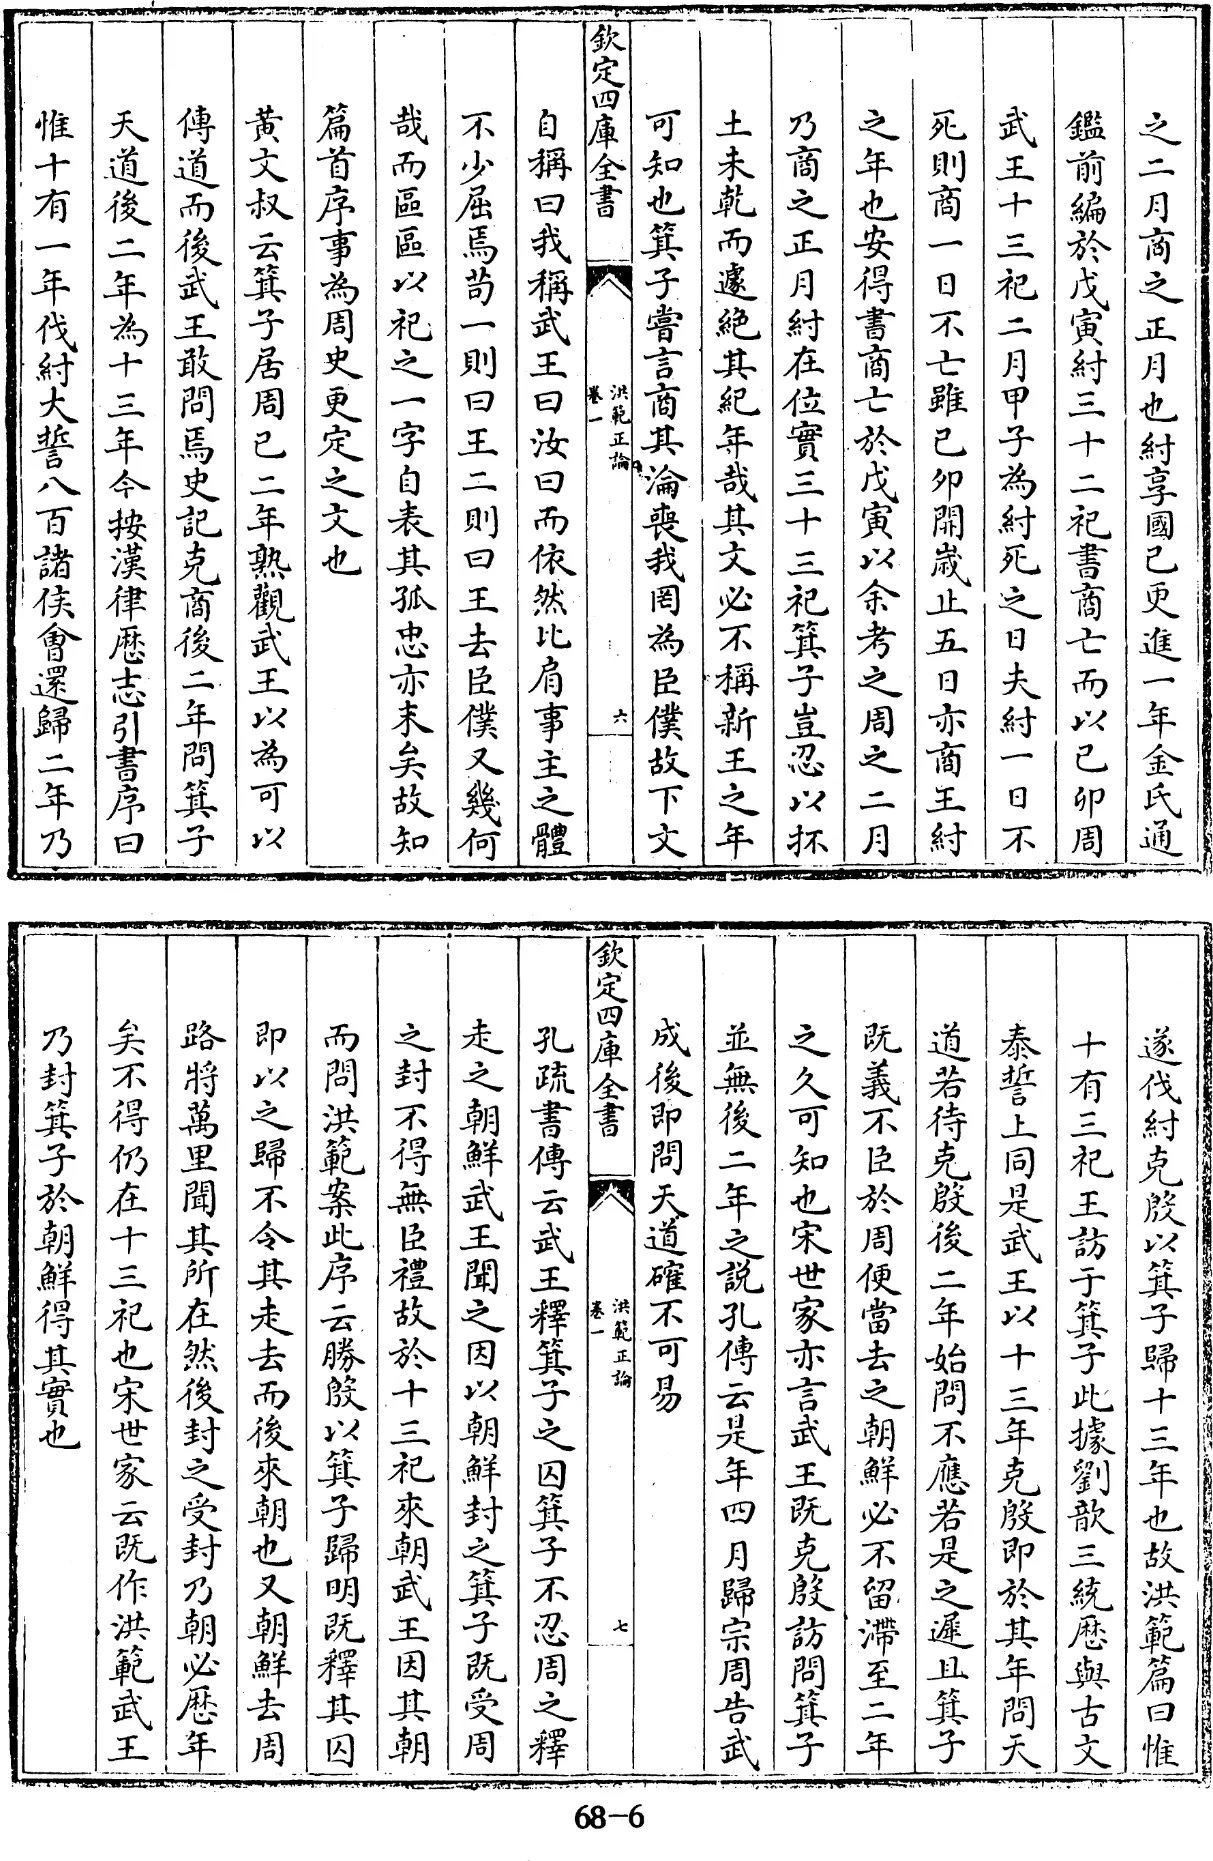 之二月商之正月也紂享國已更進一年金氏通
鑑前編於戊寅紂三十二祀書商亡而以己卯周
武王十三祀二月甲子為紂死之日夫紂一日不
死則商一日不亡雖己卯開歳止五日亦商王紂
之年也安得書商亡於戊寅以余考之周之二月
乃商之正月紂在位實三十三祀箕子豈忍以抔
土未乾而遽絶其紀年哉其文必不稱新王之年
可知也箕子嘗言商其淪喪我罔為臣僕故下文
欽定四庫全書
洪範正論
卷一
六
自稱曰我稱武王曰汝曰而依然比肩事主之體
不少屈焉苟一則曰王二則曰王去臣僕又幾何
哉而區區以祀之一字自表其孤忠亦末矣故知
篇首序事為周史更定之文也
黄文叔云箕子居周已二年熟觀武王以為可以
傳道而後武王敢問焉史記克商後二年問箕子
天道後二年為十三年今按漢律厯志引書序曰
惟十有一年伐紂大誓八百諸侯會還歸二年乃
遂伐紂克殷以箕子歸十三年也故洪範篇曰惟
十有三祀王訪于箕子此據劉歆三統厯與古文
泰誓上同是武王以十三年克殷即於其年問天
道若待克殷後二年始問不應若是之遲且箕子
既義不臣於周便當去之朝鮮必不留滯至二年
之久可知也宋世家亦言武王既克殷訪問箕子
並無後二年之説孔傳云是年四月歸宗周告武
成後即問天道確不可易
欽定四庫全書
洪範正論
卷一
七
孔疏書傳云武王釋箕子之囚箕子不忍周之釋
走之朝鮮武王聞之因以朝鮮封之箕子既受周
之封不得無臣禮故於十三祀來朝武王因其朝
而問洪範案此序云勝殷以箕子歸明既釋其囚
即以之歸不令其走去而後來朝也又朝鮮去周
路將萬里聞其所在然後封之受封乃朝必厯年
矣不得仍在十三祀也宋世家云既作洪範武王
乃封箕子於朝鮮得其實也
68-6